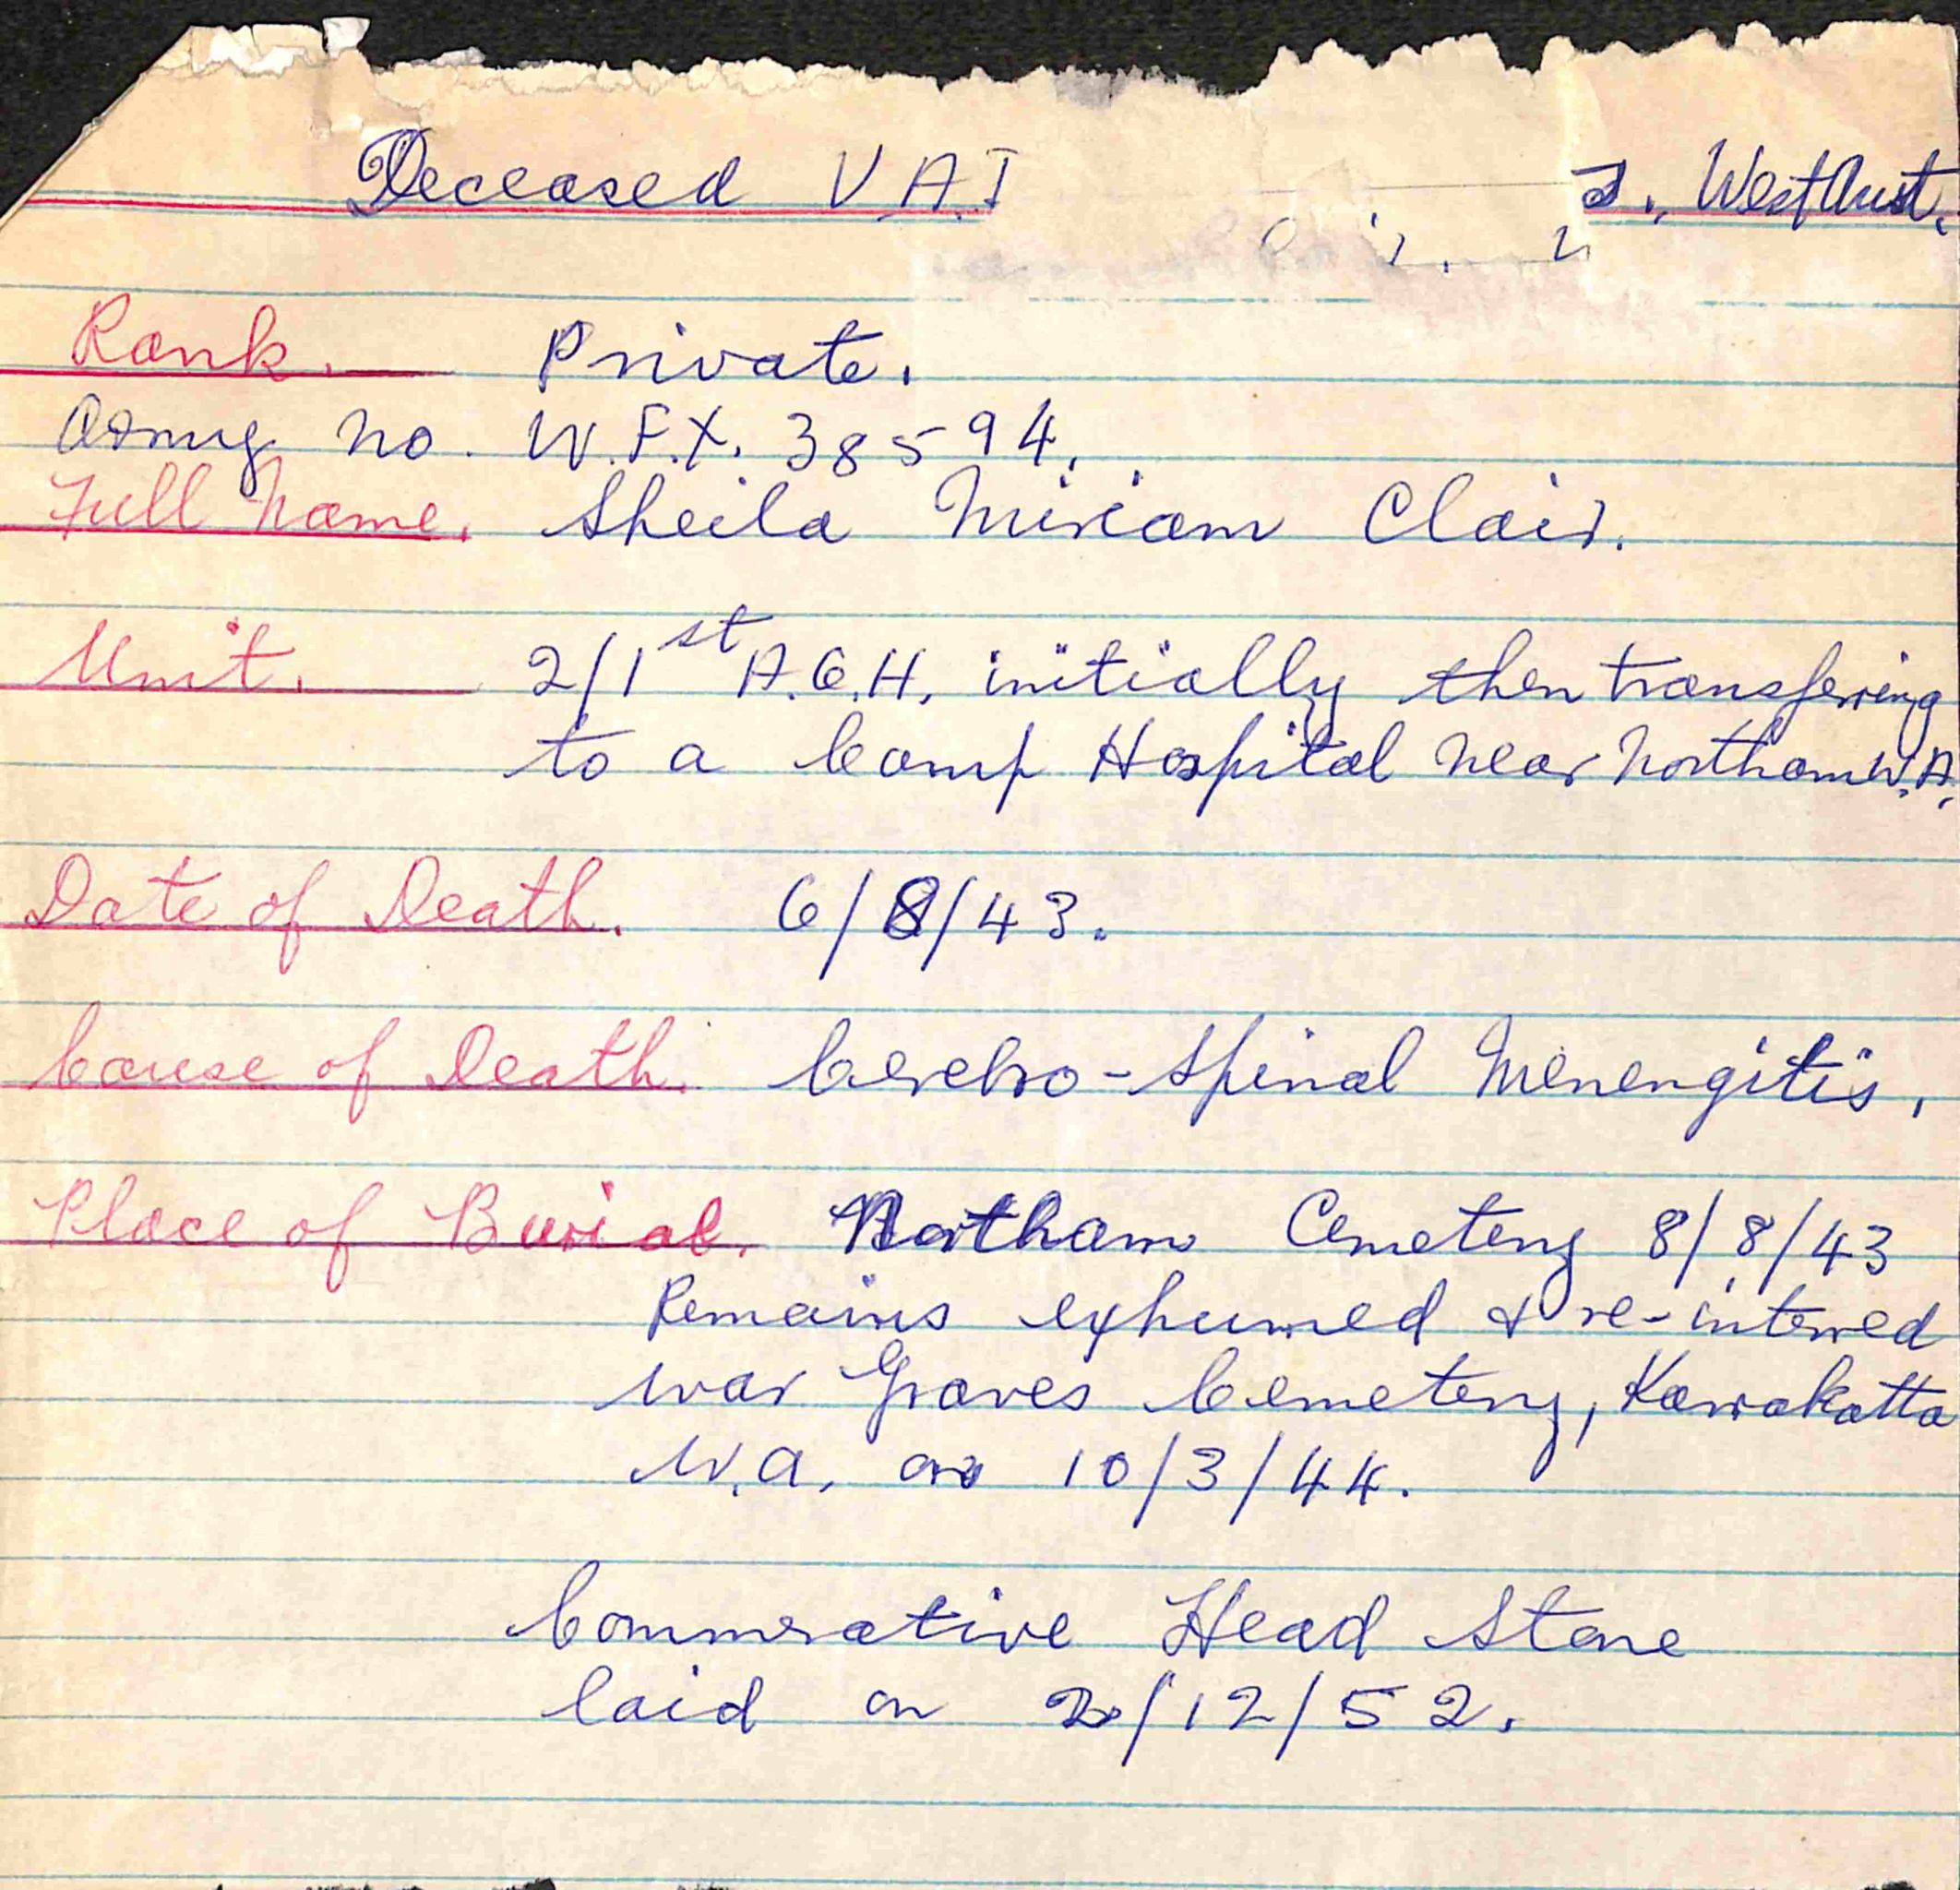 Deceased V.A.D., West Aust.
Rank. Private.
Army no. W.F.X. 38594.
Full Name. Sheila Miriam Clair.
Unit. 2/1st A.G.H. initially then transfering
to a Camp Hospital near Northam W.A.
Date of Death. 6/8/43.
Cause of Death. Cerebro-Spinal Menengitis.
Place of Burial. Northam Cemetery 8/8/43
Remains exhumed & re-interred
War Graves Cemetery, Karrakatta
W.A. on 10/3/44.
Commerative Head Stone
laid on /12/52.